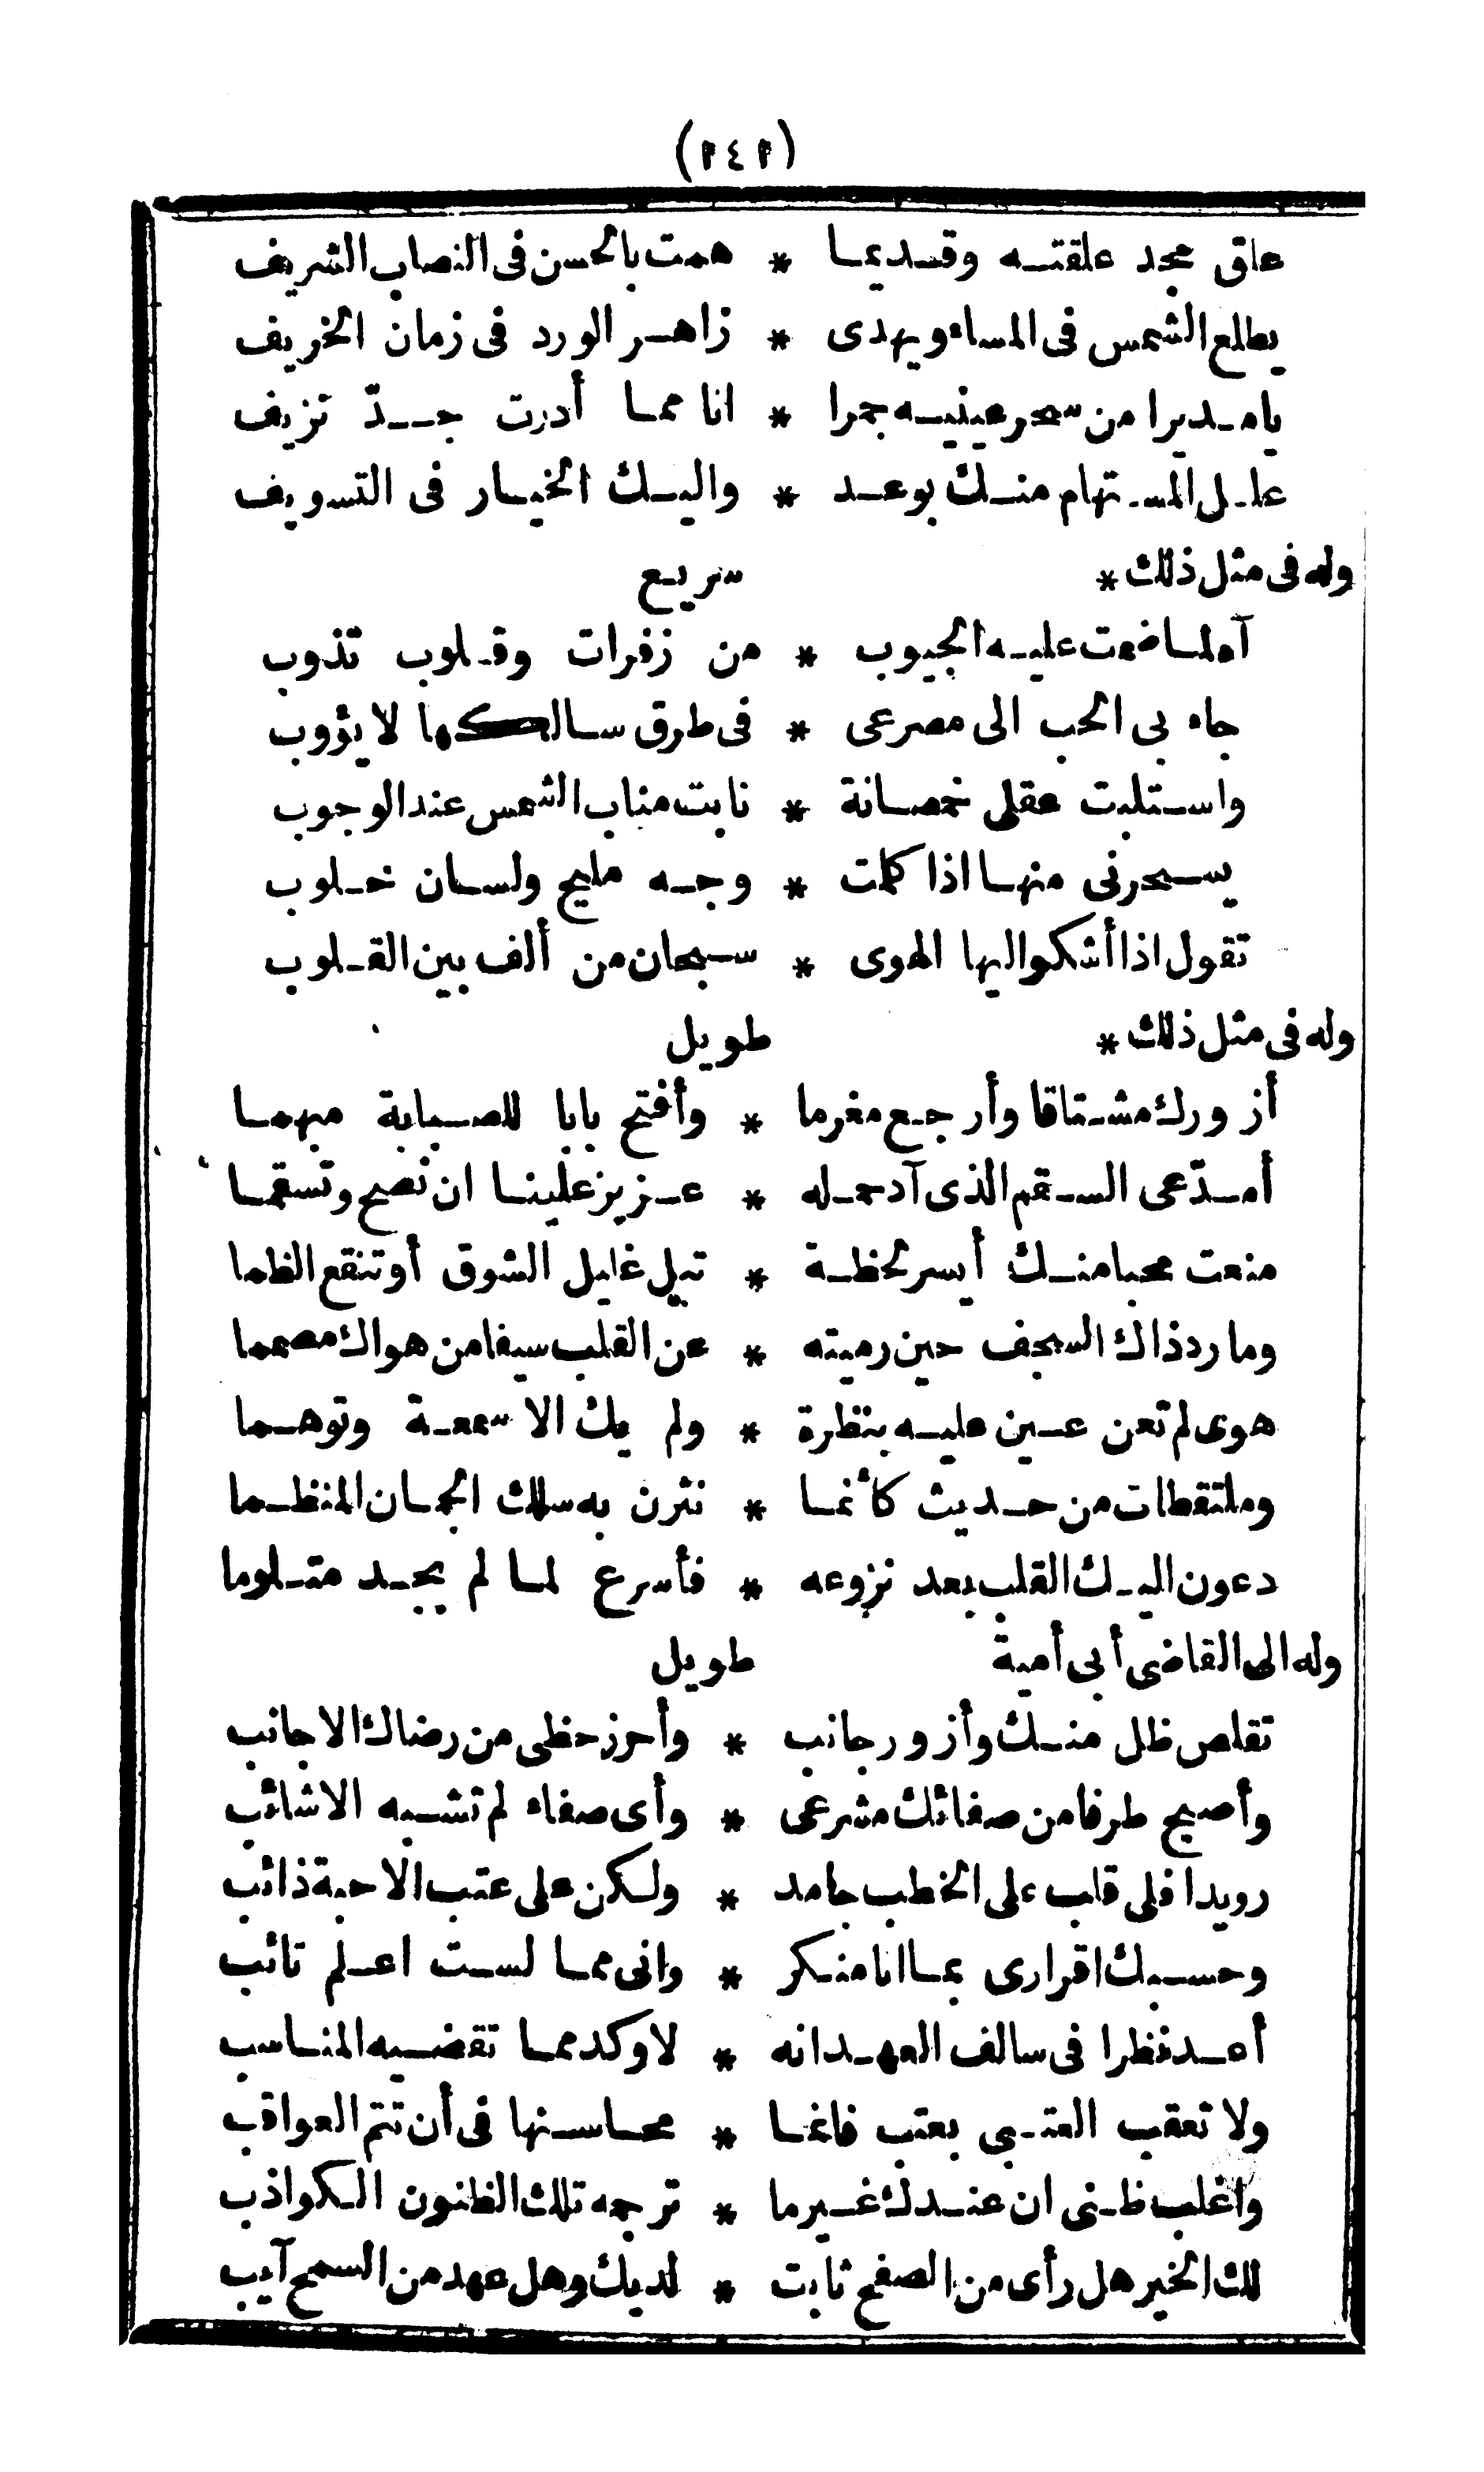 (٢٤٢)
علق مجد علقته وقديما * همت بالحسن فى النصاب الشريف
يطلع الشمس فى المساء ويهدى * زاهر الورد فى زمان الخريف
يا مديرا من سحر عينيه خمرا * انا مما أدرت جدّ نزيف
علل المستهام منك بوعد * واليك الخيار فى التسويف
وله فى مثل ذلك * سريع
آه لما ضمت عليه الجيوب * من زفرات وقلوب تذوب
جاء بى الحب الى مصرعى * فى طرق سالكها لا يؤوب
واستلبت عقلى خمصانة * نابت مناب الشمس عند الوجوب
يسحرنى منها اذا كلمت * وجه مليح ولسان خلوب
تقول اذا أشكو اليها الهوى * سبحان من ألف بين القلوب
وله فى مثل ذلك * طويل
أزورك مشتاقا وأرجع مغرما * وأفتح بابا للصبابة مبهما
أمدّعى السقم الذى آد حمله * عزيز علينا ان نصح وتسقما
منعت محبا منك أيسر لحظة * تبل غليل الشوق أو تنقع الظما
وما رد ذاك السجف حين رميته * عن القلب سيفا من هواك مصمما
هوى لم تعن عين عليه بنظرة * ولم يك الا سمعة وتوهما
وملتقطات من حديث كأنما * نثرن به سلك الجمان المنظما
دعون اليك القلب بعد نزوعه * فأسرع لما لم يجد متلوما
وله الى القاضى أبى أمية طويل
تقلص ظل منك وأزور جانب * وأحرز حظى من رضاك الاجانب
وأصبح طرفا من صفائك مشرعى * وأى صفاء لم تشبه الاشائب
رويدا فلى قلب على الخطب جامد * ولكن على عتب الاحبة ذائب
وحسبك اقرارى بما انا منكر * وانى مما لست اعلم تائب
أعد نظرا فى سالف العهد انه * لاوكد مما تقضيه المناسب
ولا تعقب العتبى بعتب فانما * محاسنها فى أن تتم العواقب
واغلب ظنى ان عندك غير ما * ترجمه تلك الظنون الكواذب
لك الخير هل رأى من الصفح ثابت * لديك وهل عهد من السمح آيب